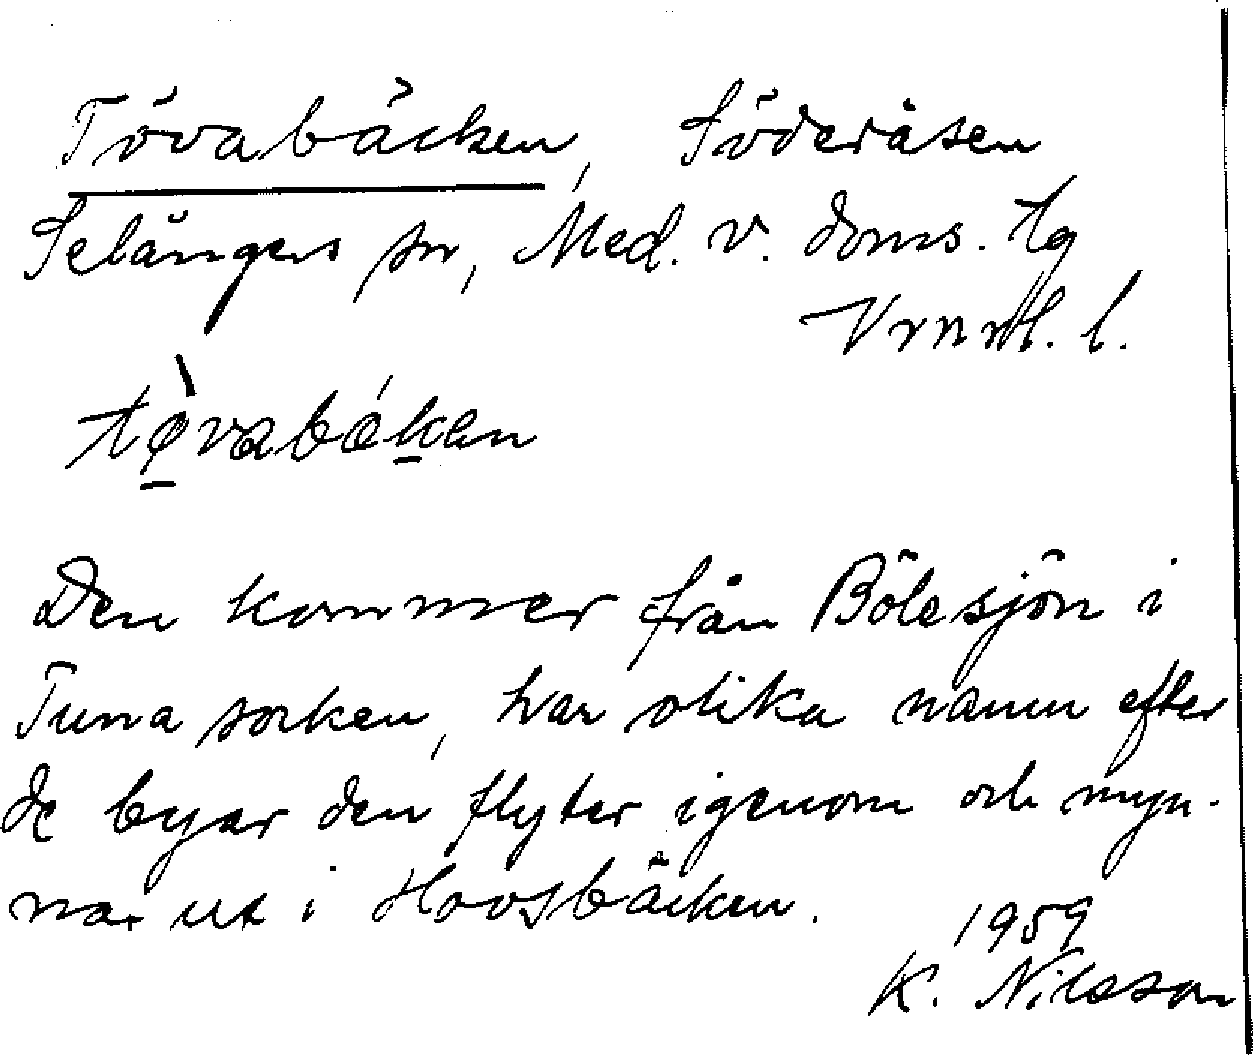 Tövabäcken, Söderåsen
Selångers sn, Med. v. doms. tg
Vrnrl. l.
tövabäken
Den kommer från Bölesjön i
Tuna socken, har olika namn efter
de byar den flyter igenom och myn-
nar ut i Hovsbäcken.
1959
K. Nilsson